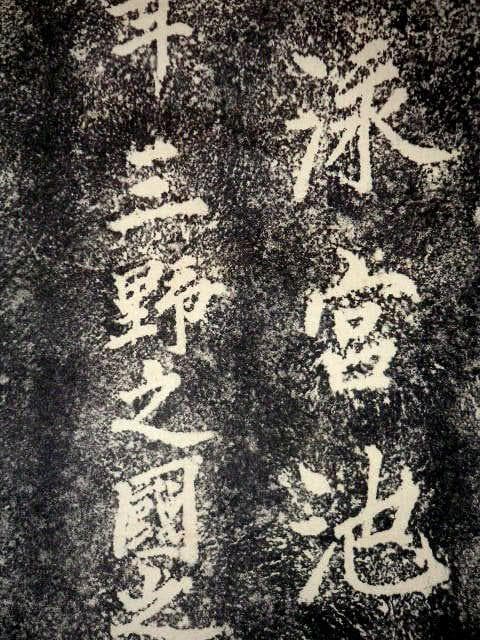 泳宮池
年三野之國之